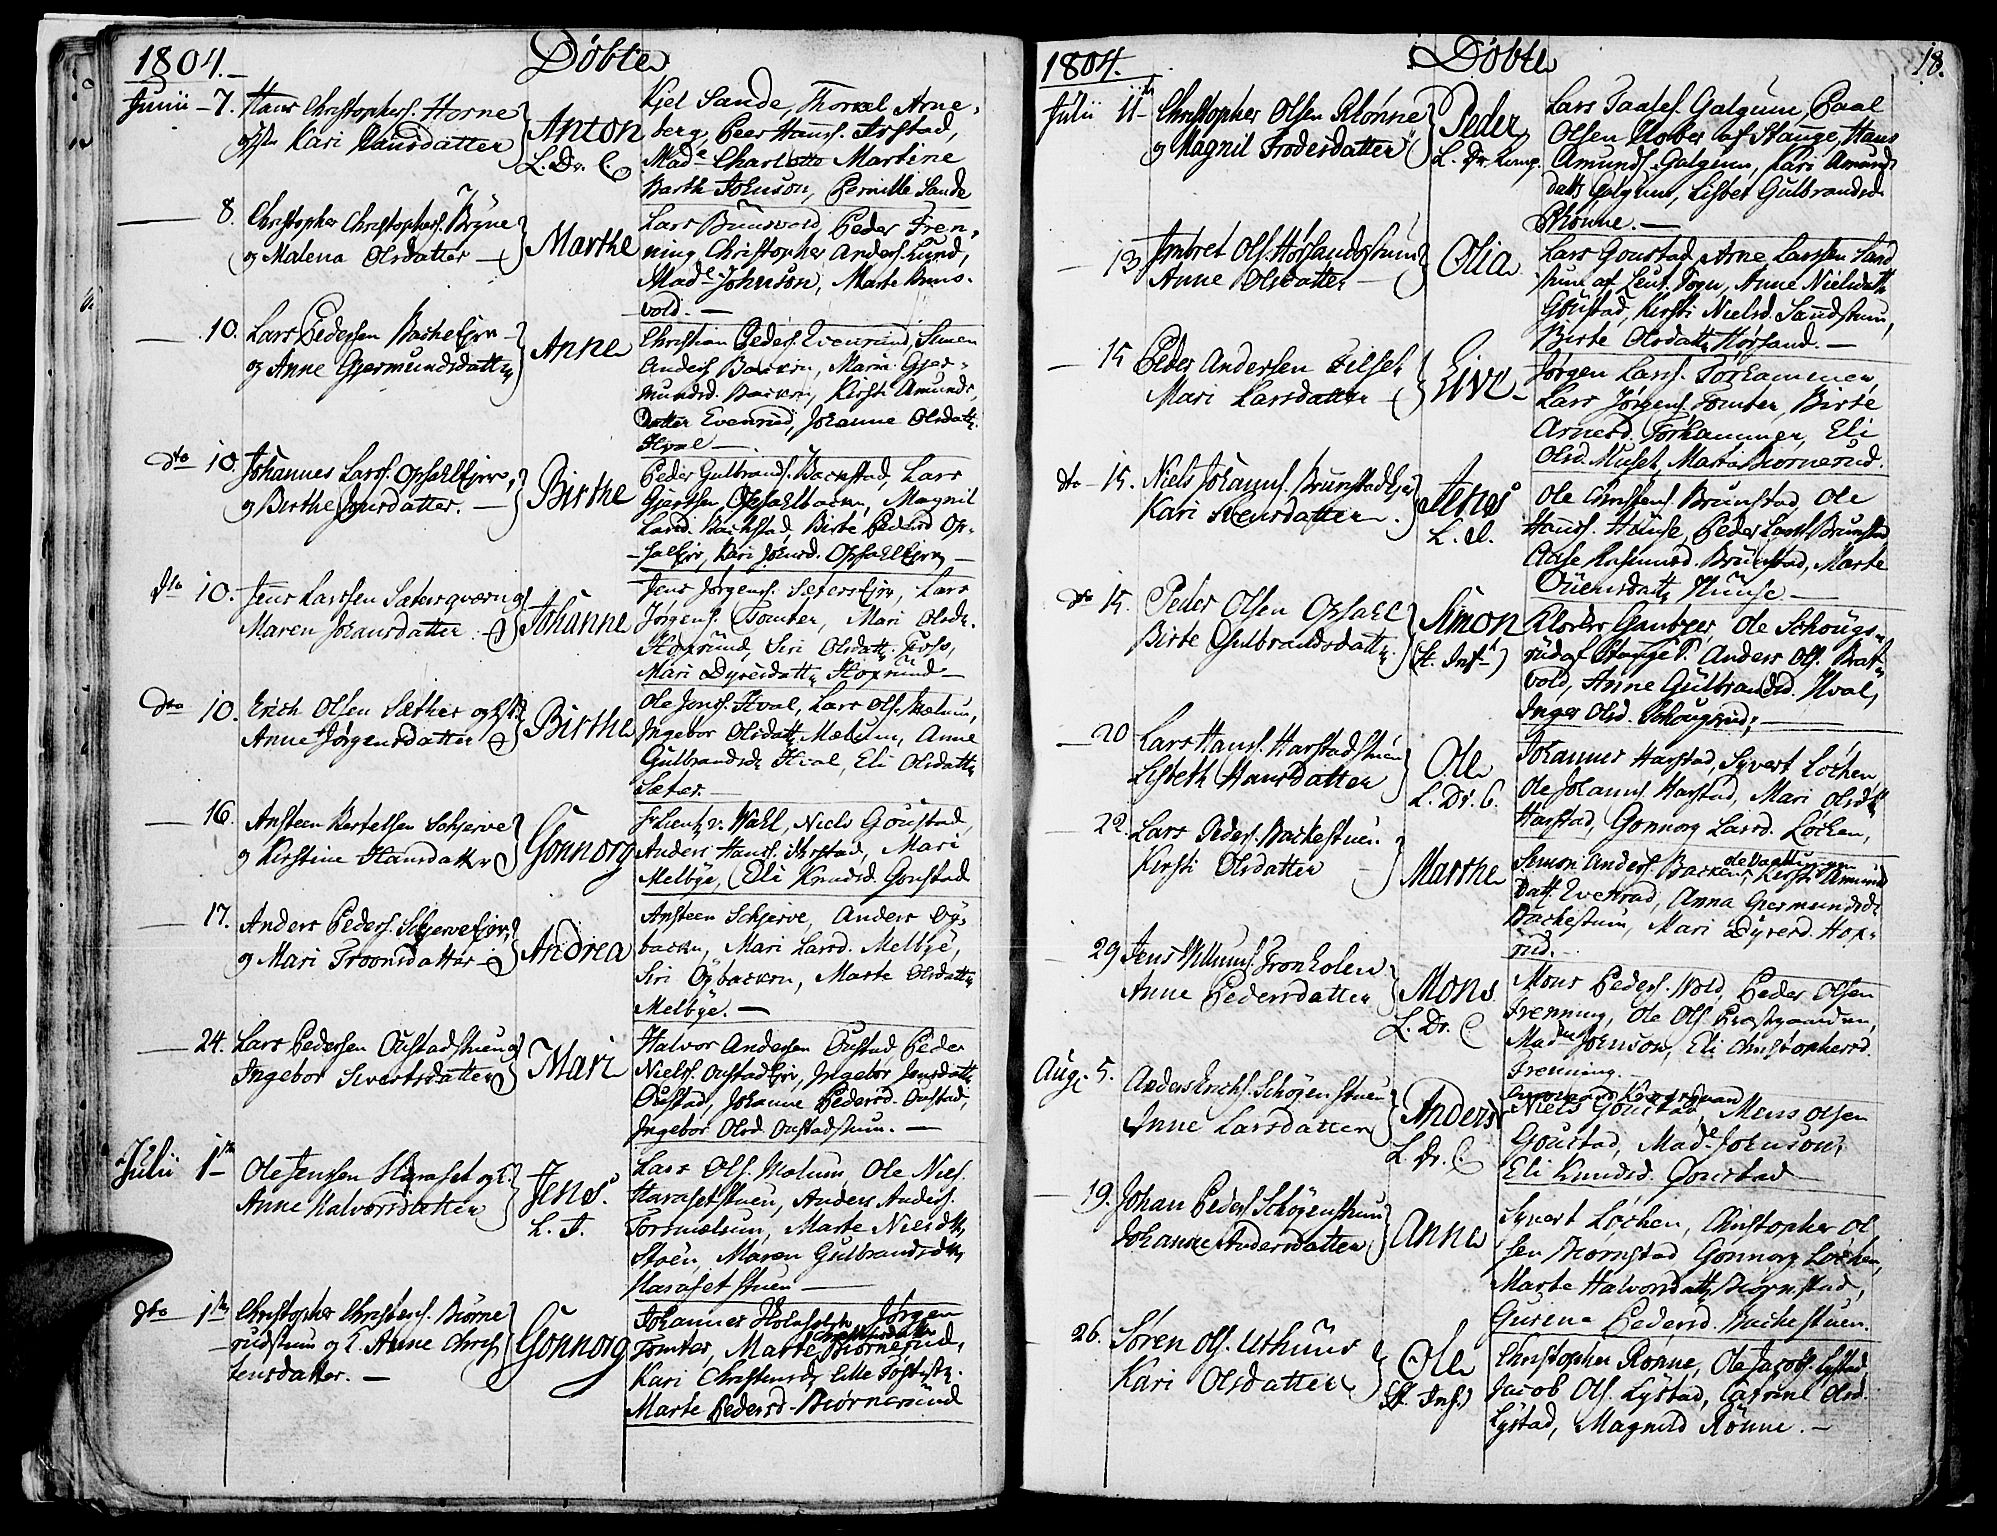 1804. Döbte
Junii 7. Hans Christophers. Horne
og H. Kari Hansdatter
Anton
L. Dr. C.
Kjel Sande, Thorkel Arne-
berg, Peer Hanss. Arstad,
Made Charlotte Martine
Barth Johnson, Pernille Sande
8. Christopher Christophers. Bryne
og Malena Olsdatter
Marthe
Lars Brunsvold, Peder Fren-
ning, Christopher Anders. Lund,
Made Johnson, Marte Bruns-
vold.
10. Lars Pedersen Backe Ejer
og Anne Gjermundsdatter
Anne
Christian Peders. Evenrud, Simen
Anders. Backen, Maria Gjer-
mundsd. Backen, Kirsti Amunds
datter Evenrud, Johanne Olsdatt.
Hval
dto 10. Johannes Larss. Opsahl Ejer,
og Birthe Jonsdatter.
Birthe
Peder Gulbrands. Backstad, Lars
Gjertsen Opsahlbacken, Magnil
Larsd. Backstad, Birte Pedersd Op-
sal Ejer, Kari Johnsd. Opsahl Ejer
dto 10. Jens Larssen Sætersqværn og
Maren Johansdatter
Johanne
Jens Jørgens. Sæters Ejer, Lars
Jørgens. Tomter, Mari Olsd.
Hoxrud, Siri Olsdatt. Foss,
Mari Dyresdatt. Hoxrud
dto 10. Erich Olsen Sæther og H.
Anne Jørgensdatter
Birthe
Ole Jonss. Hval, Lars Ols. Mælum,
Ingebor Olsdatt. Mælum, Anne
Gulbrandsd. Hval, Eli Olsdatt.
Sæter.
16. Ansteen Bertelsen Schjerve
og Kirstine Hansdatter
Gonnorg
Hr Lieut. v. Wahl, Niels Goustad,
Anders Hanss. Arstad, Mari
Melbye, Eli Knudsd. Goustad
17. Anders Peders. Schjerve Ejer,
og Mari Troensdatter
Andrea
Ansteen Schjerve, Anders Oy-
backen, Mari Larsd. Melbye,
Siri Oybacken, Marte Olsdatt.
Melbye.
24. Lars Pedersen Oustadstuen og
Ingebor Sivertsdatter
Mari
Halvor Andersen Oustad Peder
Nielss. Oustad Ejer, Ingebor Jensdatt.
Oustad, Johanne Pedersd. Oustad,
Ingebor Olsd. Oustadstuen.
Julii 1ste Ole Jenssen Haraset og H.
Anne Halvorsdatter
Jens.
L. I.
Lars Ols. Mælum, Ole Niels.
Harasetstuen, Anders Anders.
Torsmælum, Marte Nielsd.
Stoen, Maren Gulbrandsd.
Haraset stuen
dto 1ste Christopher Christens. Biørne
rudstuen og H. Anne Chris
tensdatter.
Gonnorg
Johannes Jørgen
Tomter, Marte Christensdatter Biørnerud,
Kari Christensd. Lille
Marte Pedersd. Biørnerud
1804. Döbte 18.
Julii 11te Christopher Olsen Rønne
og Magnil Frodesdatter
Peder
L. Dr. Comp.
Lars Taales. Galgum, Paal
Olsen Klober af Stange, Hans
Amunds. Galgum, Kari Amunds
datt. Galgum, Lisbet Gulbrandsd.
Rønne.
13. Imbret Ols. Hørsandstuen
Anne Olsdatter
Olia
Lars Goustad, Arne Larssen Sand
stuen af Leut. Fogn, Anne Nielsdatt.
Goustad, Kirsti Nielsd. Sandstuen,
Birte Olsdatt. Hørsand.
15. Peder Andersen Filset
Mari Larsdatter
Live
Jørgen Larss. Torhammer,
Lars Jørgens. Tomter, Birte
Arnesd. Torhammer, Eli
Olsd. Muset, Maria Biørnerud.
dto 15. Niels Johanns. Brunstad Ejer
Kari Svensdatter
Jens
L. D.
Ole Christens. Brunstad, Ole
Hanss. Huuse, Peder Larss. Brunstad
Aase Rasmusd. Brunstad, Marte
Ouensdatt. Huuse.
dto 15. Peder Olsen Opsahl
Birte Gulbrandsdatt.
Simon
(St. Inf.)
Klocker Ganbyer, Ole Schougs-
rud af Stange P. Anders Ols. Brat-
vold, Anne Gulbrandsd. Hval,
Inger Olsd. Schougsrud,
20. Lars Hanss. Harstadstuen
Lisbeth Hansdatter
Ole
L. Dr. C.
Johannes Harstad, Syvert Løchen
Ole Johanns. Harstad, Mari Olsd.
Harstad, Gonnorg Larsd. Løchen,
22. Lars Peders. Backestuen.
Kirsti Olsdatter
Marthe
Simon Anders. Backen, Kirsti Amunds
datt. Evenrud, Anna Gjermundsd.
Backestuen, Mari Dyresd. Hox-
rud.
29. Jens Willums. Fronholen
Anne Pedersdatter
Mons
L. Dr. C
Mons Peders. Wold, Peder Olsen
Frenning, Ole Ols. Præstgaarden,
Made Johnson, Eli Christophersd.
Frenning.
Aug. 5. Anders Erichs. Schøyenstuen
Anne Larsdatter
Anders
L. Dr. C
Niels Goustad, Mens Olsen
Goustad, Made Johnson,
Eli Knudsd. Goustad
19. Johan Peders. Schøyenstuen
Johanne Andersdatter
Anne
Syvert Løchen, Christopher Ol
sen Biørnstad, Gonnorg Løchen,
Marte Halvorsdatt. Biørnstad,
Gurina Pedersd. Backestuen.
26. Søren Ols. Uthuus
Kari Olsdatter
Ole
(St. Inf.)
Christopher Rønne, Ole Jacobs. Lystad
Jacob Ols. Lystad, Catrine Olsd.
Lystad, Magnild Rønne.